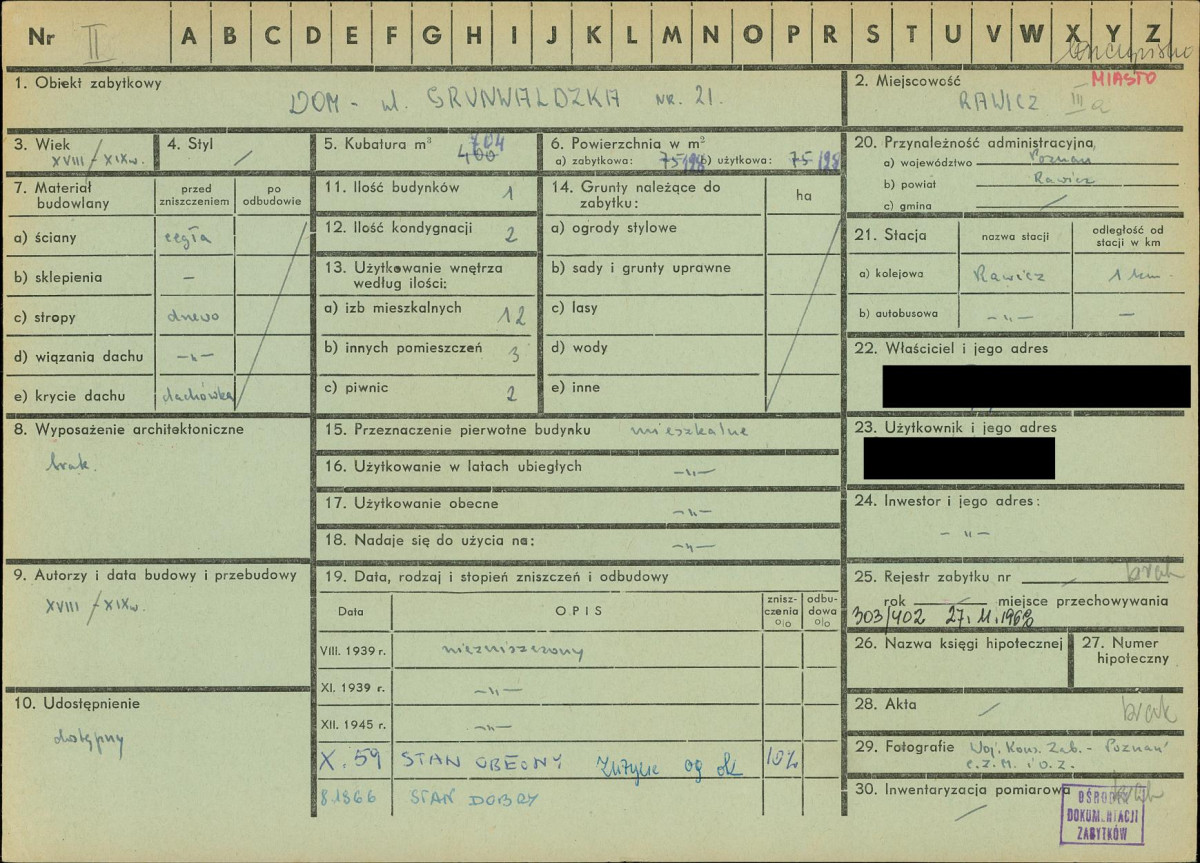 Nr II A B C D E F G H I J K L Ł M N O P R S T U V W X Y Z
1. Obiekt zabytkowy
DOM - ul. GRUNWALDZKA NR. 21.
2. Miejscowość MIASTO
RAWICZ III a
3. Wiek
XVIII/XIXw.
4. Styl /
5. Kubatura m³ 704
400
6. Powierzchnia w m²
a) zabytkowa: 75 b) użytkowa: 75
7. Materiał budowlany
przed zniszczeniem
po odbudowie
a) ściany cegła
b) sklepienia —
c) stropy drewo
d) wiązania dachu —„—
e) krycie dachu dachówka
8. Wyposażenie architektoniczne
brak.
9. Autorzy i data budowy i przebudowy
XVIII/XIXw.
10. Udostępnienie
dostępny
11. Ilość budynków 1
12. Ilość kondygnacji 2
13. Użytkowanie wnętrza
według ilości:
a) izb mieszkalnych 12
b) innych pomieszczeń 3
c) piwnic 2
14. Grunty należące do
zabytku:
ha
a) ogrody stylowe
b) sady i grunty uprawne
c) lasy
d) wody
e) inne
15. Przeznaczenie pierwotne budynku mieszkalne
16. Użytkowanie w latach ubiegłych —„—
17. Użytkowanie obecne —„—
18. Nadaje się do użycia na: —„—
19. Data, rodzaj i stopień zniszczeń i odbudowy
Data OPIS znisz-
czenia
o/o odbu-
dowa
o/o
VIII. 1939 r. niezniszczony
XI. 1939 r. —„—
XII. 1945 r. —„—
X. 59 STAN OBECNY 10%
8.1966 STAN DOBRY
20. Przynależność administracyjna
a) województwo Poznań
b) powiat Rawicz
c) gmina /
21. Stacja nazwa stacji odległość od
stacji w km
a) kolejowa Rawicz 1 km.
b) autobusowa —„— —
22. Właściciel i jego adres
23. Użytkownik i jego adres
24. Inwestor i jego adres:
—„—
25. Rejestr zabytku nr / brak
rok / miejsce przechowywania
303/402 27. 11. 1968
26. Nazwa księgi hipotecznej
27. Numer
hipoteczny
28. Akta / brak
29. Fotografie Woj. Kons. Zab. - Poznań
C.Z.M. i O.Z.
30. Inwentaryzacja pomiarowa brak
/
OŚRODEK
DOKUMENTACJI
ZABYTKÓW